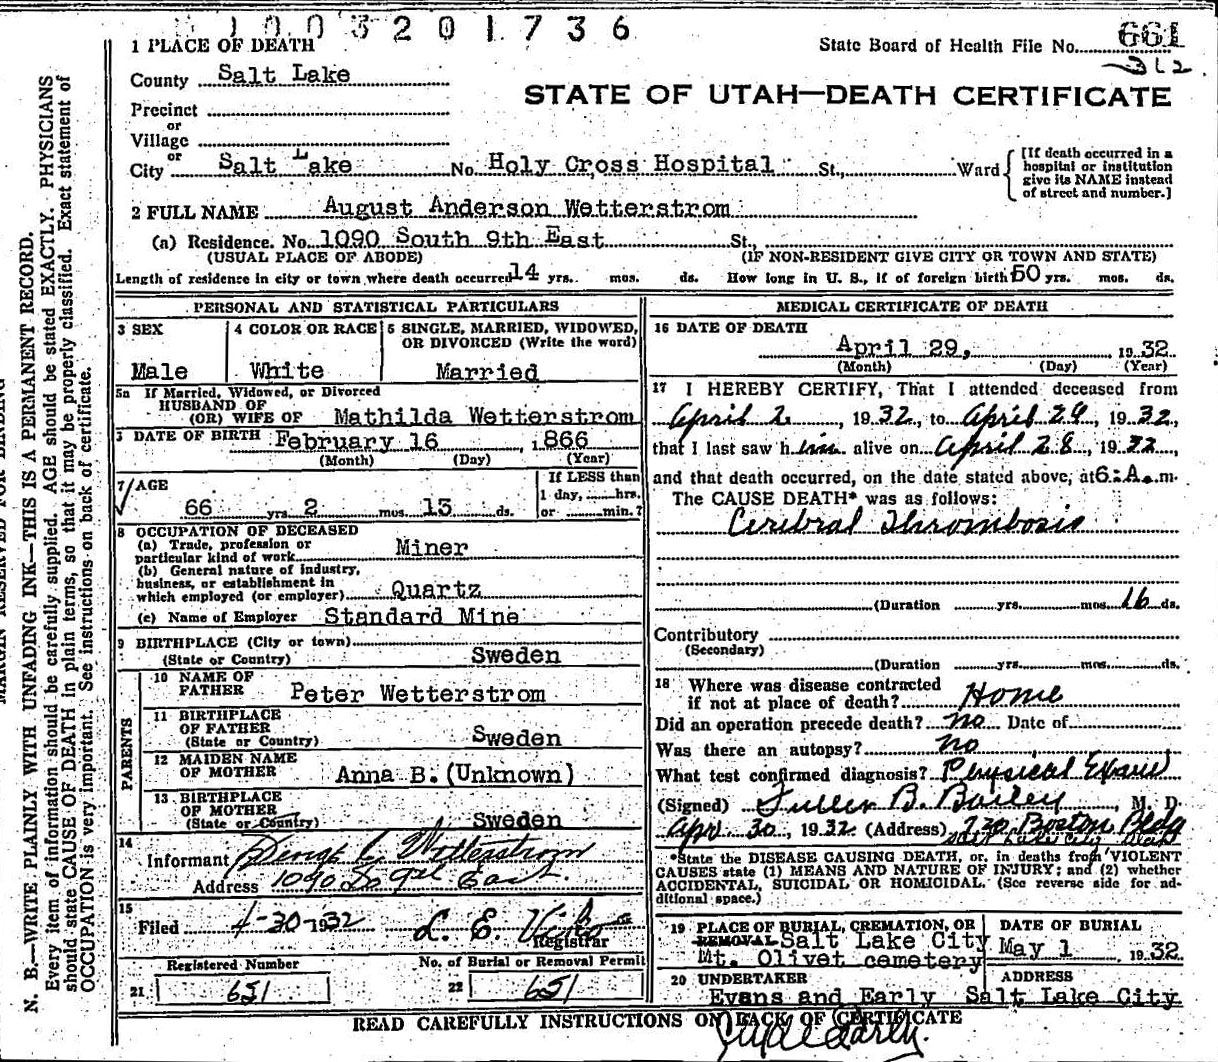 1003201736
State Board of Health File No. 661
312
1 PLACE OF DEATH
County Salt Lake
STATE OF UTAH—DEATH CERTIFICATE
Precinct
or
Village
or
City Salt Lake No. Holy Cross Hospital St., Ward
[If death occurred in a hospital or institution give its NAME instead of street and number.]
2 FULL NAME August Anderson Wetterstrom
(a) Residence. No. 1090 South 9th East St.,
(USUAL PLACE OF ABODE) (IF NON-RESIDENT GIVE CITY OR TOWN AND STATE)
Length of residence in city or town where death occurred 14 yrs. mos. ds. How long in U. S., if of foreign birth 50 yrs. mos. ds.
PERSONAL AND STATISTICAL PARTICULARS
3 SEX
Male
4 COLOR OR RACE
White
5 SINGLE, MARRIED, WIDOWED, OR DIVORCED (Write the word)
Married
5a If Married, Widowed, or Divorced
HUSBAND OF
(OR) WIFE OF Mathilda Wetterstrom
DATE OF BIRTH February 16, 1866
(Month) (Day) (Year)
7 AGE
66 yrs. 2 mos. 13 ds.
If LESS than
1 day, hrs.
or min.?
8 OCCUPATION OF DECEASED
(a) Trade, profession or
particular kind of work Miner
(b) General nature of industry,
business, or establishment in
which employed (or employer) Quartz
(c) Name of Employer Standard Mine
9 BIRTHPLACE (City or town)
(State or Country) Sweden
PARENTS
10 NAME OF
FATHER Peter Wetterstrom
11 BIRTHPLACE
OF FATHER
(State or Country) Sweden
12 MAIDEN NAME
OF MOTHER Anna B. (Unknown)
13 BIRTHPLACE
OF MOTHER
(State or Country) Sweden
14
Informant Wetterstrom
Address 1090 So 9th East.
15
Filed 4-30-1932 L. E.
Registrar
Registered Number
21 651
No. of Burial or Removal Permit
22 651
MEDICAL CERTIFICATE OF DEATH
16 DATE OF DEATH
April 29, 1932
(Month) (Day) (Year)
17 I HEREBY CERTIFY, That I attended deceased from
April 2, 1932, to April 29, 1932,
that I last saw him alive on April 28, 1932,
and that death occurred, on the date stated above, at 6:A.m.
The CAUSE DEATH* was as follows:
Cerebral Thrombosis
(Duration yrs. mos. 16 ds.
Contributory
(Secondary)
(Duration yrs. mos. ds.
18 Where was disease contracted
if not at place of death? Home
Did an operation precede death? no Date of
Was there an autopsy? no
What test confirmed diagnosis? Physical Exam
(Signed) Fuller B. Bailey, M. D.
Apr. 30, 1932 (Address) 720 Boston Bldg
Salt Lake City Utah
*State the DISEASE CAUSING DEATH, or, in deaths from VIOLENT
CAUSES state (1) MEANS AND NATURE OF INJURY; and (2) whether
ACCIDENTAL, SUICIDAL OR HOMICIDAL. (See reverse side for ad-
ditional space.)
19 PLACE OF BURIAL, CREMATION, OR
REMOVAL Salt Lake City
Mt. Olivet cemetery
DATE OF BURIAL
May 1, 1932
20 UNDERTAKER
Evans and Early
ADDRESS
Salt Lake City
READ CAREFULLY INSTRUCTIONS ON BACK OF CERTIFICATE
Early.
MARGIN RESERVED FOR BINDING
N. B.—WRITE PLAINLY WITH UNFADING INK—THIS IS A PERMANENT RECORD.
Every item of information should be carefully supplied. AGE should be stated EXACTLY. PHYSICIANS
should state CAUSE OF DEATH in plain terms, so that it may be properly classified. Exact statement of
OCCUPATION is very important. See instructions on back of certificate.